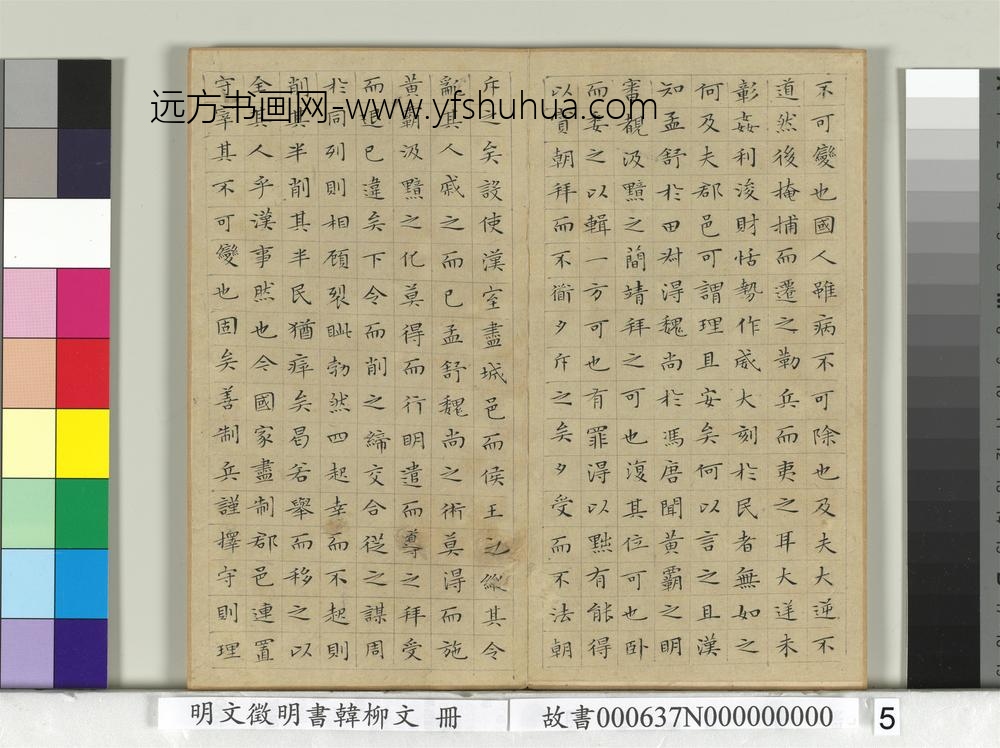 远方书画网-www.yfshuhua.com
不可變也國人雖病不可除也及夫大逆不
道然後掩捕而遷之勒兵而夷之耳大逆未
彰姦利浚財怙勢作威大刻於民者無如之
何及夫郡邑可謂理且安矣何以言之且漢
知孟舒於田叔得魏尚於馮唐聞黃霸之明
審覩汲黯之簡靖拜之可也復其位可也卧
而委之以輯一方可也有罪得以黜有能得
以賞朝拜而不衜夕斥之矣夕受而不法朝
斥之矣設使漢室盡城邑而侯王之縱其令
亂其人戚之而已孟舒魏尚之術莫得而施
黃霸汲黯之化莫得而行明遣而導之拜受
而退已違矣下令而削之締交合從之謀周
於同列則相顧裂眦勃然四起幸而不起則
削其半削其半民猶瘁矣曷若舉而移之以
全其人乎漢事然也今國家盡制郡邑連置
守宰其不可變也固矣善制兵謹擇守則理
明文徵明書韓柳文 冊
故書000637N000000000
5